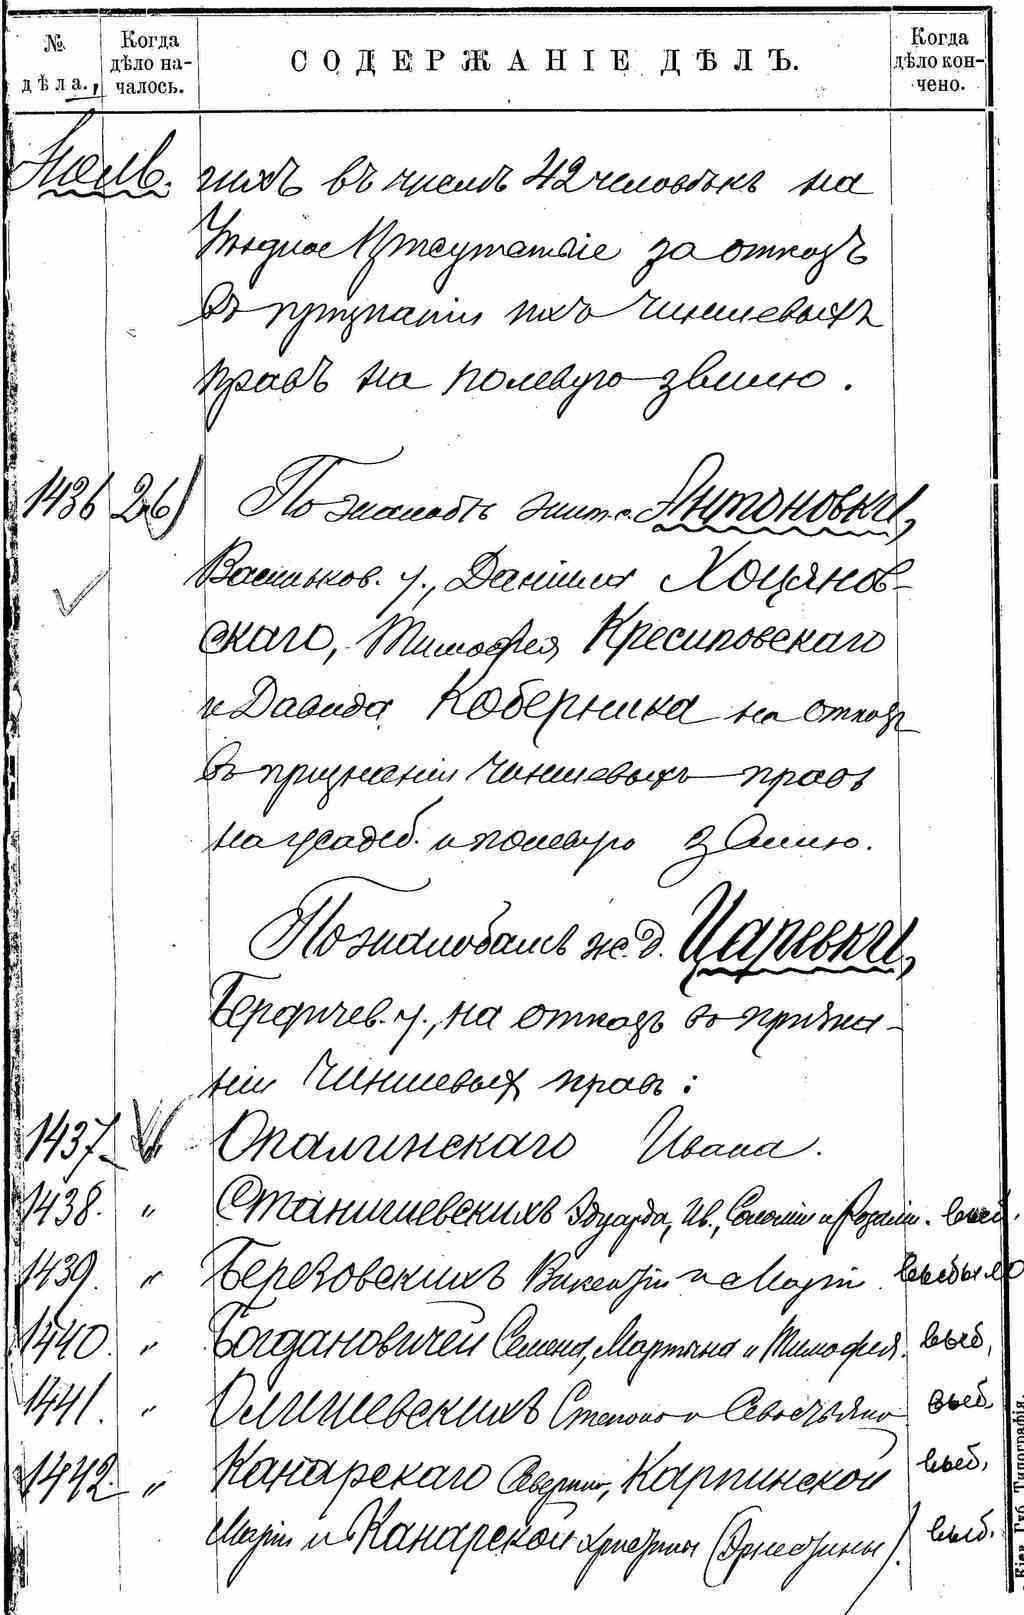 № дѣла.
Когда дѣло на-чалось.
СОДЕРЖАНІЕ ДѢЛЪ.
Когда дѣло кон-чено.
гихъ въ числѣ 42 человѣкъ на
Уѣздное Присутствіе за отказъ
въ признаніи ихъ чиншевыхъ
правъ на полевую землю.
1436 26) По жалобѣ жит. с. Антоновки,
Васильков. у., Даніила Хоцянов-
скаго, Тимофея
и Давида Коберника на отказъ
въ признаніи чиншевыхъ правъ
на усадеб. и полевую землю.
По жалобамъ ж. д. Царевки,
Бердичев. у., на отказъ въ призна-
ніи чиншевыхъ правъ:
1437 " Опалинскаго Ивана.
1438. " Станишевскихъ Эдуарда, Ив., Соломіи и Розаліи. выб.
1439. " Березовскихъ Викентія и Маріи выбыло
1440. " Богдановичей Семена, Мартына и Тимофея. выб.
1441. " Олишевскихъ Степана и Севастьяна выб.
1442. " Канарскаго Северина, Карпинской выб.
Маріи и Канарской Христины (Эрнестины). выб.
Кіев. Губ. Типографія.